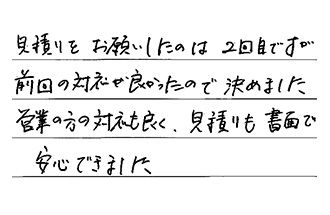 見積りを お願いしたのは 2回目ですが
前回の対応が良かったので 決めました
営業の方の対応も良く、見積りも 書面で
安心できました